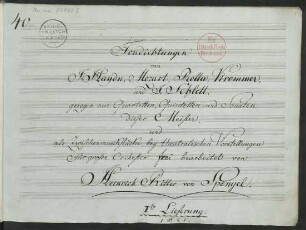 40.
Tondichtungen
von
J. Haydn, Mozart, Rolla, Krommer,
und J. Schlett,
gezogen aus Quartetten, Quintetten und Sonaten
dieser Meister,
und
als Zwischenmusikstücke bey theatralischen Vorstellungen
für große Orchester frei bearbeitet von
Heinrich Ritter von Spengel.
Lieferung.